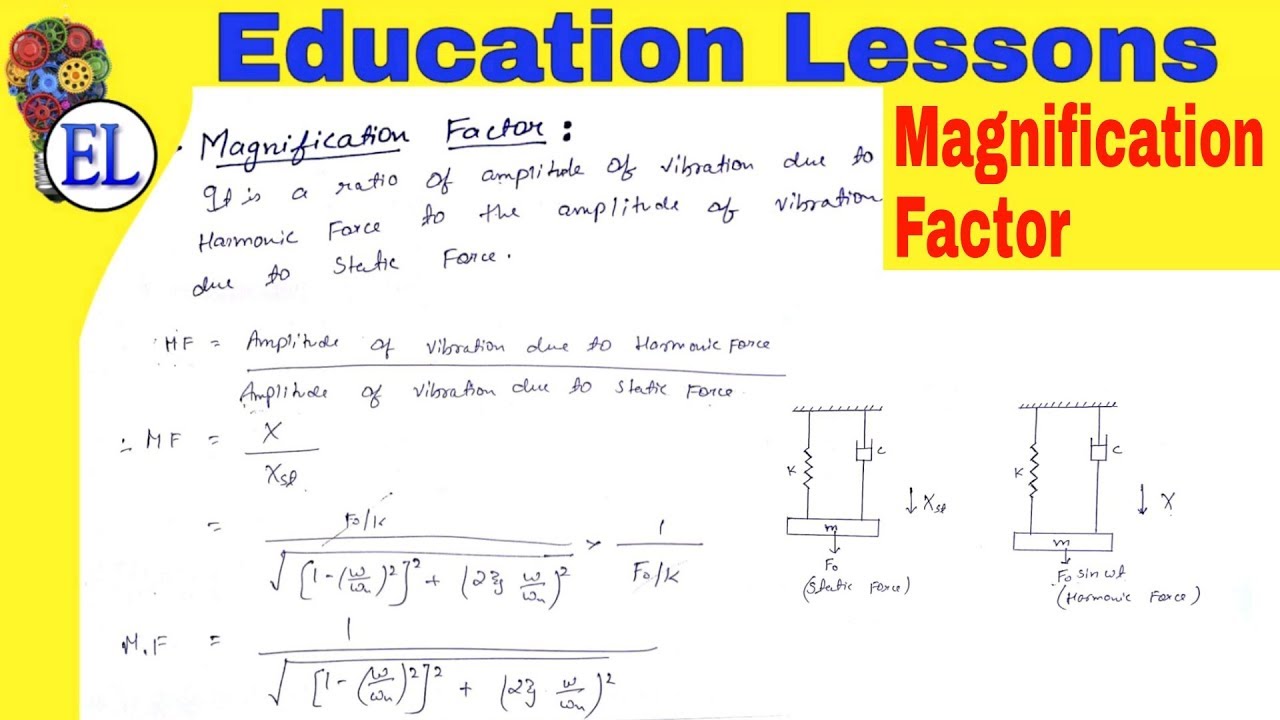 Education Lessons
EL
Magnification
Factor
Magnification Factor :
It is a ratio of amplitude of vibration due to
Harmonic Force to the amplitude of vibration
due to Static Force.
MF = Amplitude of vibration due to Harmonic Force
Amplitude of vibration due to Static Force.
∴ MF = X
Xst
= F₀/K
√[1-(ω/ωn)²]² + (2ξ ω/ωn)² × 1
F₀/K
M.F = 1
√[1-(ω/ωn)²]² + (2ξ · ω/ωn)²
K
C
↓ Xst
m
F₀
(Static Force)
K
C
↓ X
m
F₀ sin ωt
(Harmonic Force)